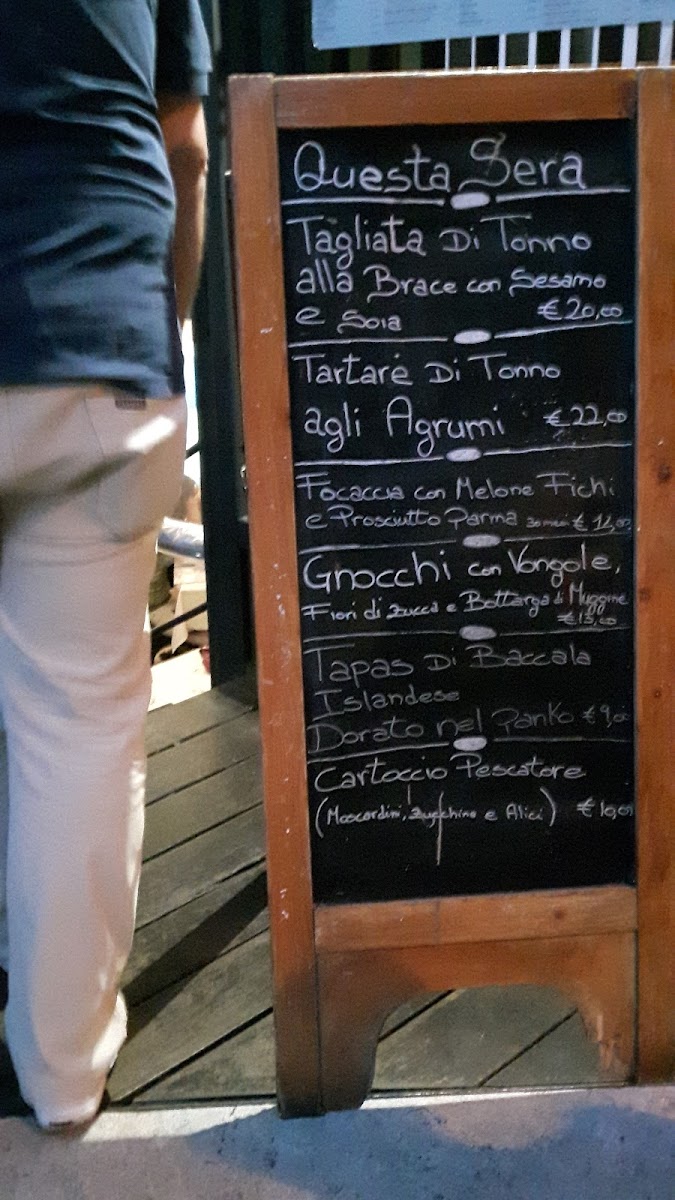 Questa Sera
Tagliata Di Tonno
alla Brace con Sesamo
e Soia €20,00
Tartare Di Tonno
agli Agrumi €22,00
Focaccia con Melone Fichi
e Prosciutto Parma €12,00
Gnocchi con Vongole,
Fiori di Zucca e Bottarga di Muggine
€13,00
Tapas Di Baccala
Islandese
Dorato nel Panko €9,00
Cartoccio Pescatore
(Moscardini, Zucchine e Alici) €10,00